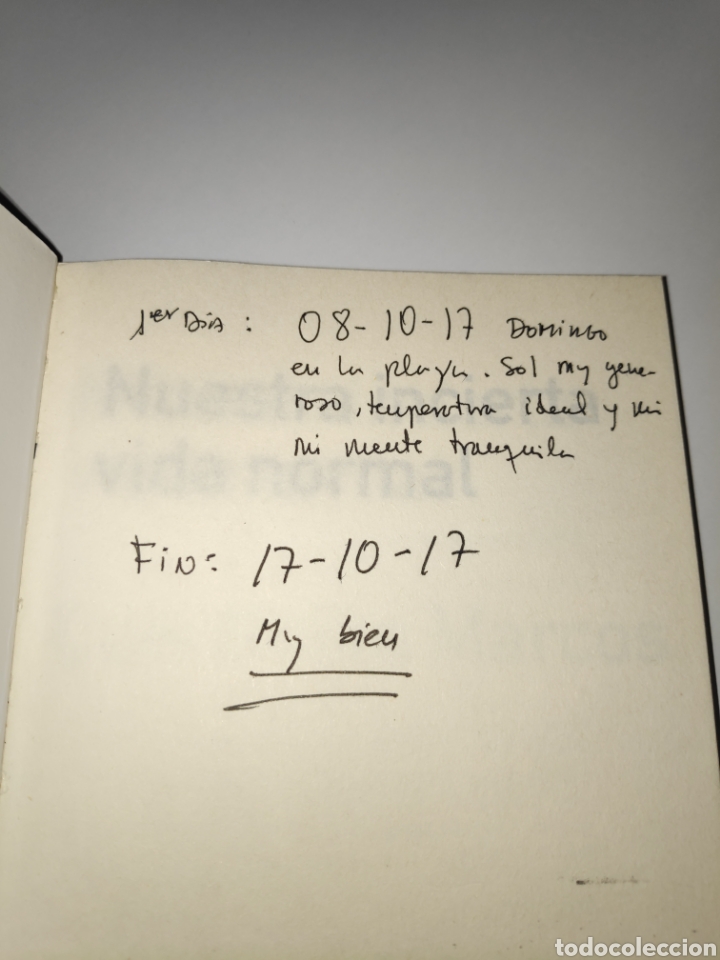 1er DíA: 08-10-17 DOMINGO
en la playa. Sol my gene-
roso, temperatura ideal y mi
mi mente tranquila
Nuestra incierta
vida normal
FIN: 17-10-17
My bien
todocoleccion